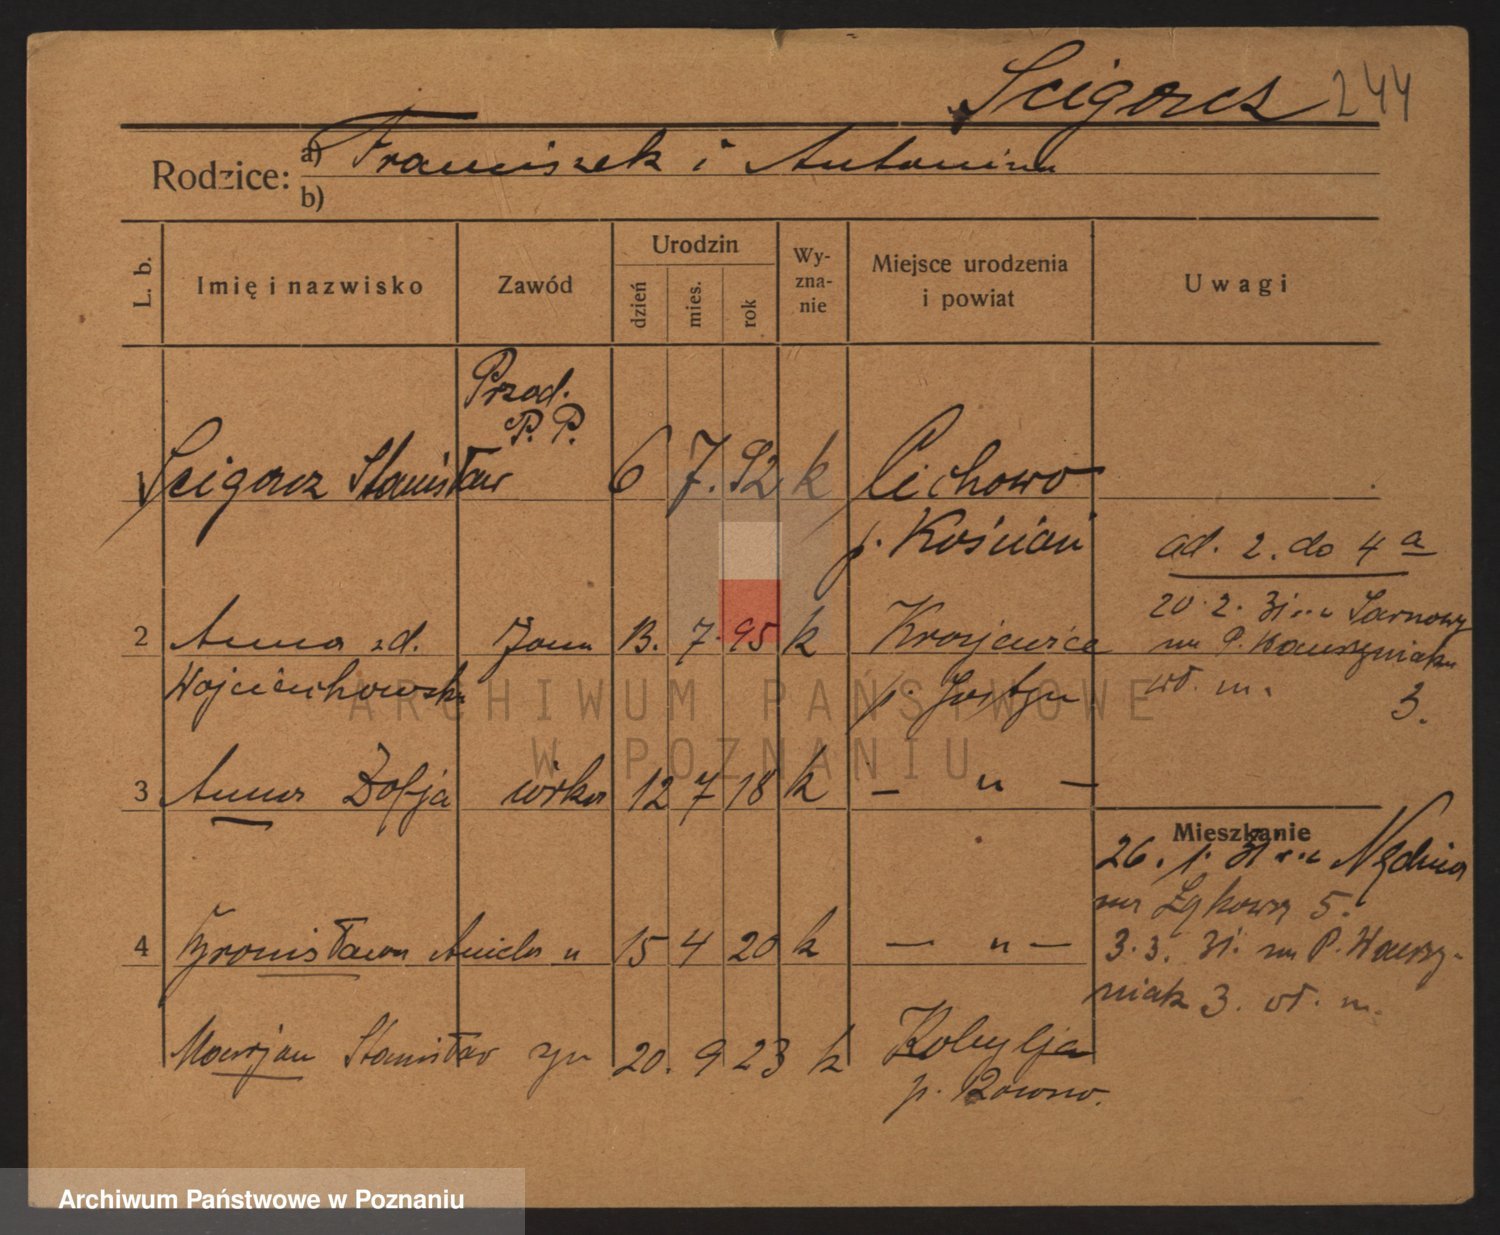 Ścigacz 244
Rodzice: a) Franciszek i Antonina
b)
L. b. Imię i nazwisko Zawód Urodzin dzień mies. rok Wy-zna-nie Miejsce urodzenia i powiat Uwagi
Przod.
P. P.
1 Ścigacz Stanisław 6 7. 92 k Cichowo
p. Kościan
ad. 2. do 4 a
20. 2. 31 Sarnowy
2 Anna zd. żona 13. 7. 95 k Krajewice
na P. Wawrzyniaka
Wojciechowska p. Gostyn
wł. m. 3.
3 Anna Zofja córka 12 7 18 k — " —
Mieszkanie
26. 1. 31
na Łąkowy 5.
4 Bronisława Aniela " 15 4 20 k — " —
3. 3. 31. na P. Wawrzy-
niak 3. wł. m.
Marjan Stanisław syn 20. 9 23 k Kobylja
p. Równo.
ARCHIWUM PAŃSTWOWE
W POZNANIU
Archiwum Państwowe w Poznaniu